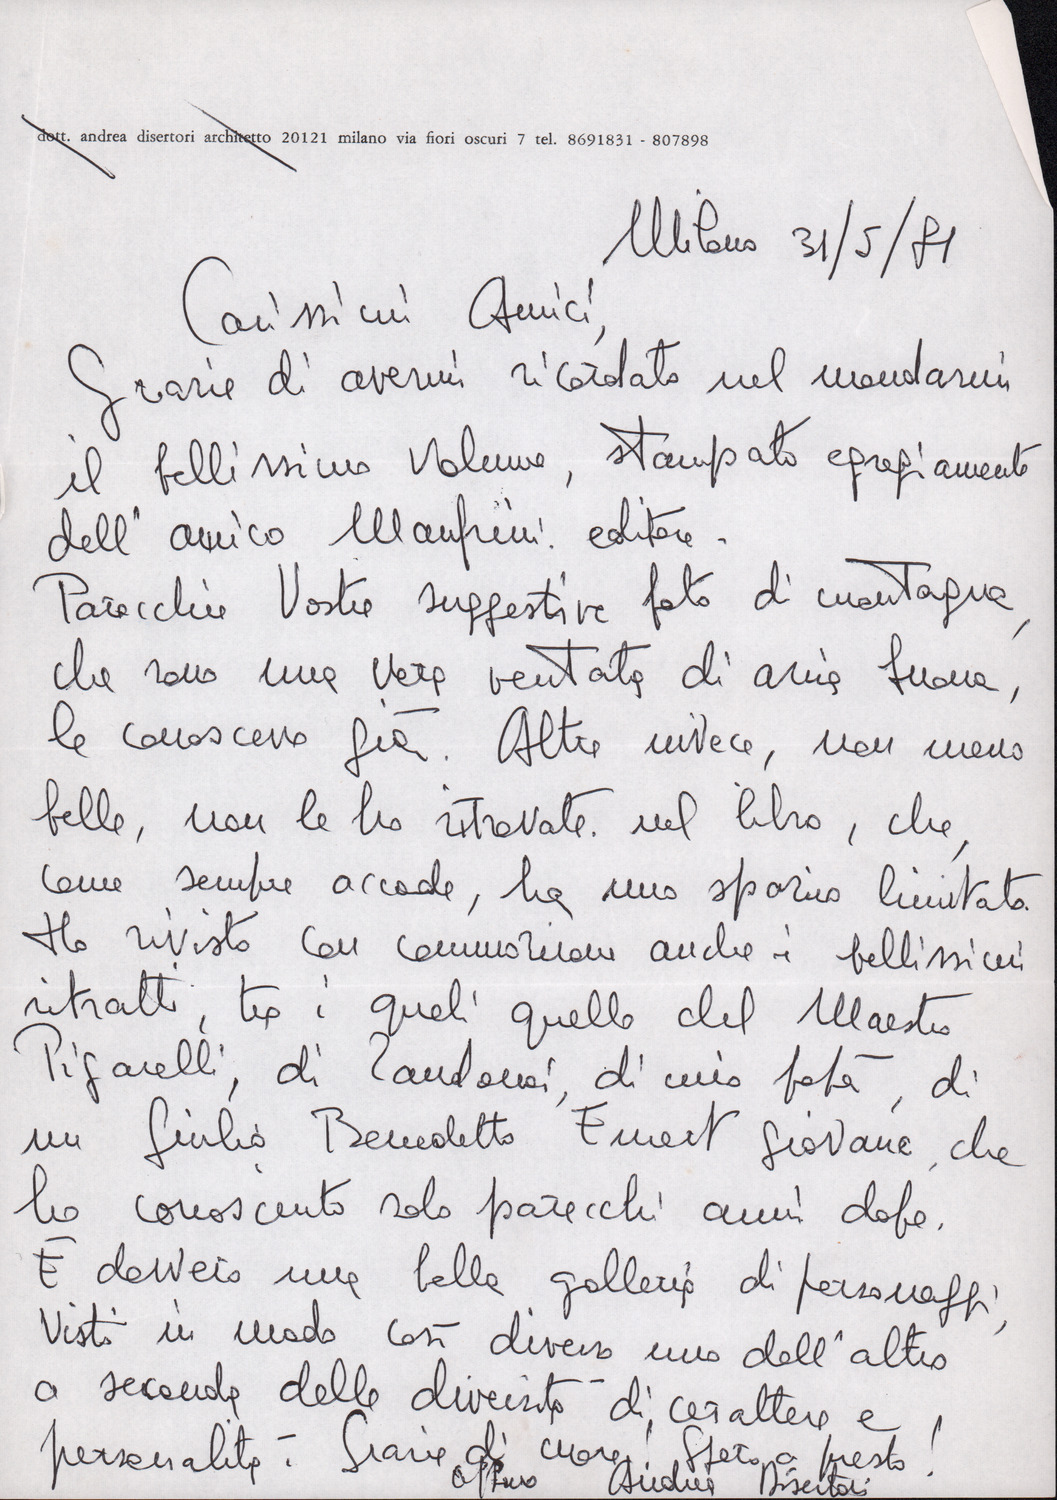 dott. andrea disertori architetto 20121 milano via fiori oscuri 7 tel. 8691831 - 807898
Milano 31/5/81
Carissimi Amici,
Grazie di avermi ricordato nel mandarmi
il bellissimo volume, stampato egregiamente
dell'amico Manfrini editore.
Parecchie Vostre suggestive foto di montagna,
che sono una vera ventata di aria buona,
le conoscevo già. Altre invece, non meno
belle, non le ho ritrovate nel libro, che,
come sempre accade, ha uno spazio limitato.
Ho rivisto con commozione anche i bellissimi
ritratti, tra i quali quello del Maestro
Pigarelli, di Zandonai, di mio papà, di
un Giulio Benedetto Emert giovane, che
ho conosciuto solo parecchi anni dopo.
È davvero una bella galleria di personaggi,
visti in modo così diverso uno dall'altro
a seconda delle diversità di carattere e
personalità. Grazie di cuore! Spero a presto!
Andrea Disertori